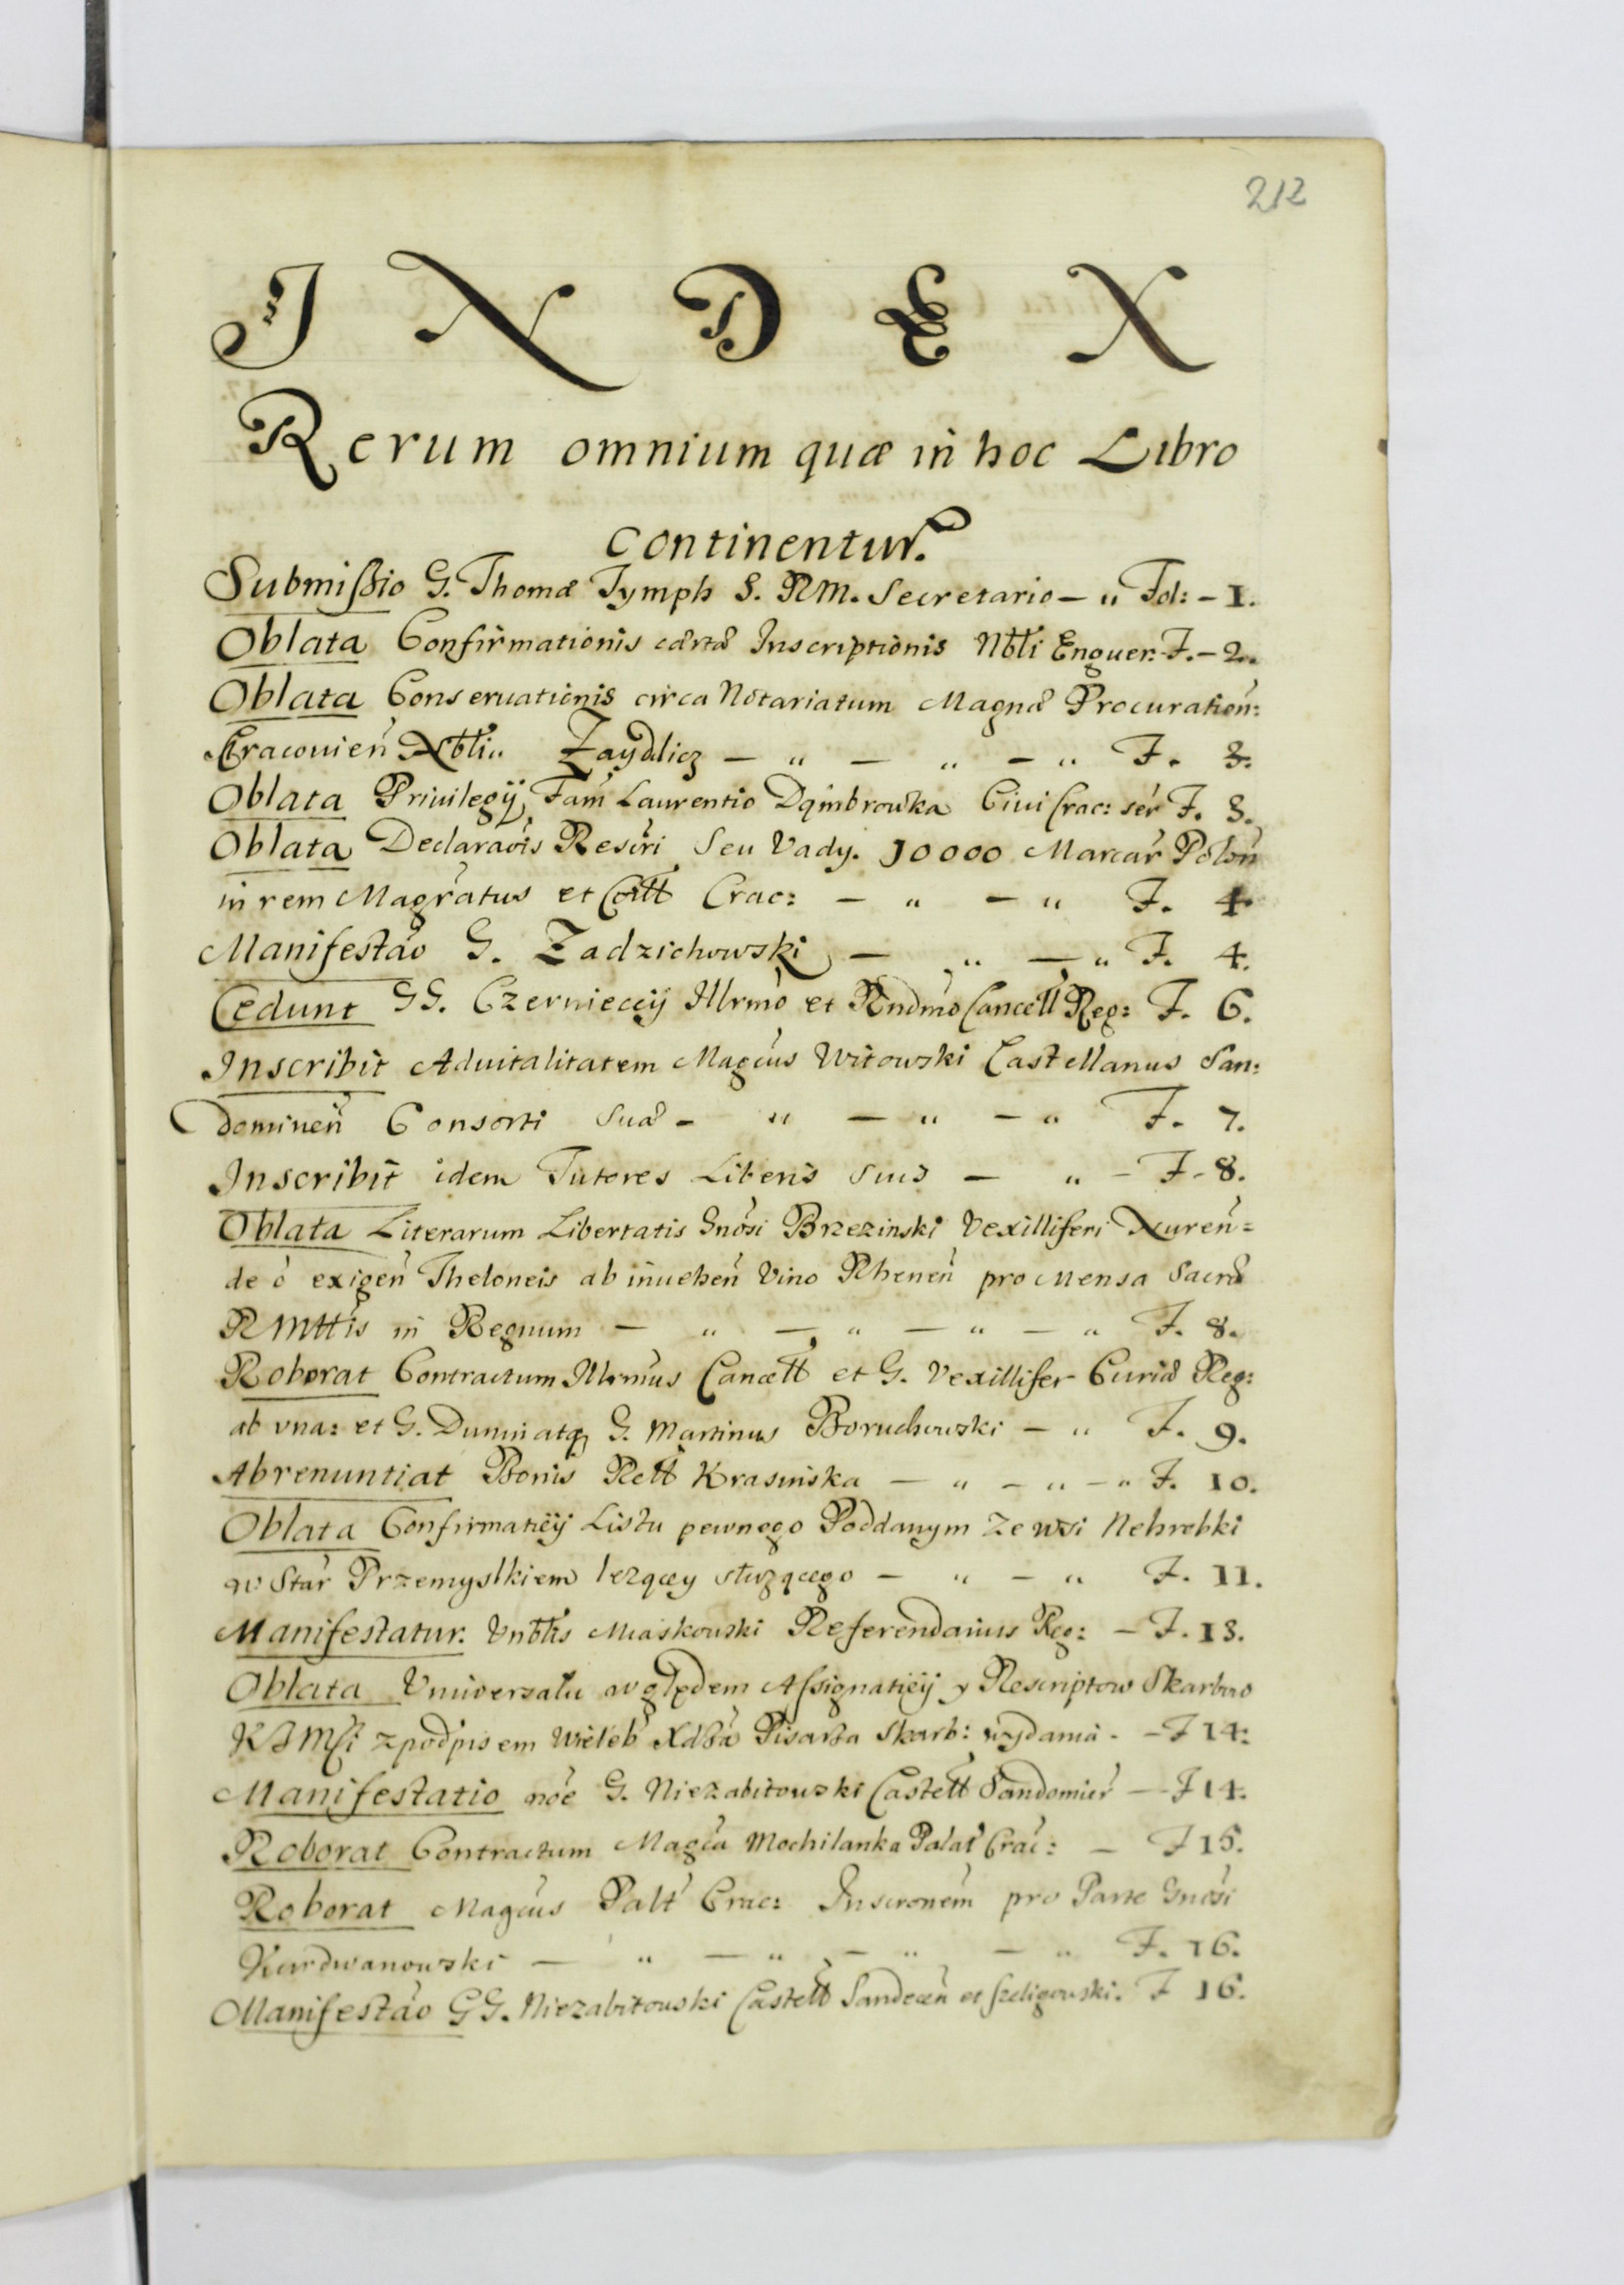 212
INDEX
Rerum omnium quæ in hoc Libro
continentur.
Submißio G. Thomæ Tymph S. RM. Secretario – „ Fol: – 1.
Oblata Confirmationis Inscriptionis Nbli Enguer. F. – 2.
Oblata Conseruationis circa Notariatum Magnæ Procuration:
Cracouień Nbli„ Zaydlicz – „ – „ – „ F. 3.
Oblata Priuilegÿ Fam Laurentio Dąmbrowka Ciui Crac: ser F. 3.
Oblata Declaraõis Rescri Seu Vady. 10000 Marcar Polon
in rem Magratus et Cõitt Crac: – „ – „ F. 4.
Manifestão G. Zadzichowski – „ – „ F. 4.
Cedunt GG. Czernieccÿ Illrmo et Rndmo Cancell Reg: F. 6.
Inscribit Aduitalitatem Magcus Witowski Castellanus San:
domirień Consorti Suæ – „ – „ – „ F. 7.
Inscribit idem Tutores Liberis Suis – „ – F. 8.
Oblata Literarum Libertatis Gnosi Brzezinski Vexilliferi Xuren =
de õ exigeń Theloneis ab inueheń Vino Rheneń pro Mensa Sacræ
RMttis in Regnum – „ – „ – „ – „ F. 8.
Roborat Contractum Illrmus Cancell et G. Vexillifer Curiæ Reg:
ab vna: et G. Dunin atq G. Martinus Boruchowski – „ F. 9.
Abrenuntiat Bonis Rell Krasinska – „ – „ – „ F. 10.
Oblata Confirmatiey Listu pewnego Poddanym ze wsi Nehrebki
w Star Przemyslkiem lezącey słuzącego – „ – „ F. 11.
Manifestatur. Vnblis Miaskowski Referendarius Reg: – F. 13.
Oblata Vniversału względem Assignatiey y Rescriptow Skarbwo
KJMsi z podpisem Wieleb Xdza Pisarza Skarb: wydania. – F 14:
Manifestatio nõe G. Niezabitowski Castell Sandomier – F 14.
Roborat Contractum Magca Mochilanka Palat Crac: – F 15.
Roborat Magcus Palt Crac: Inscronem pro Parte Gnosi
Kardwanowski – „ – „ – „ – „ F. 16.
Manifestão GG. Niezabitowski Castell Sandeceń et Szeligowski. F 16.